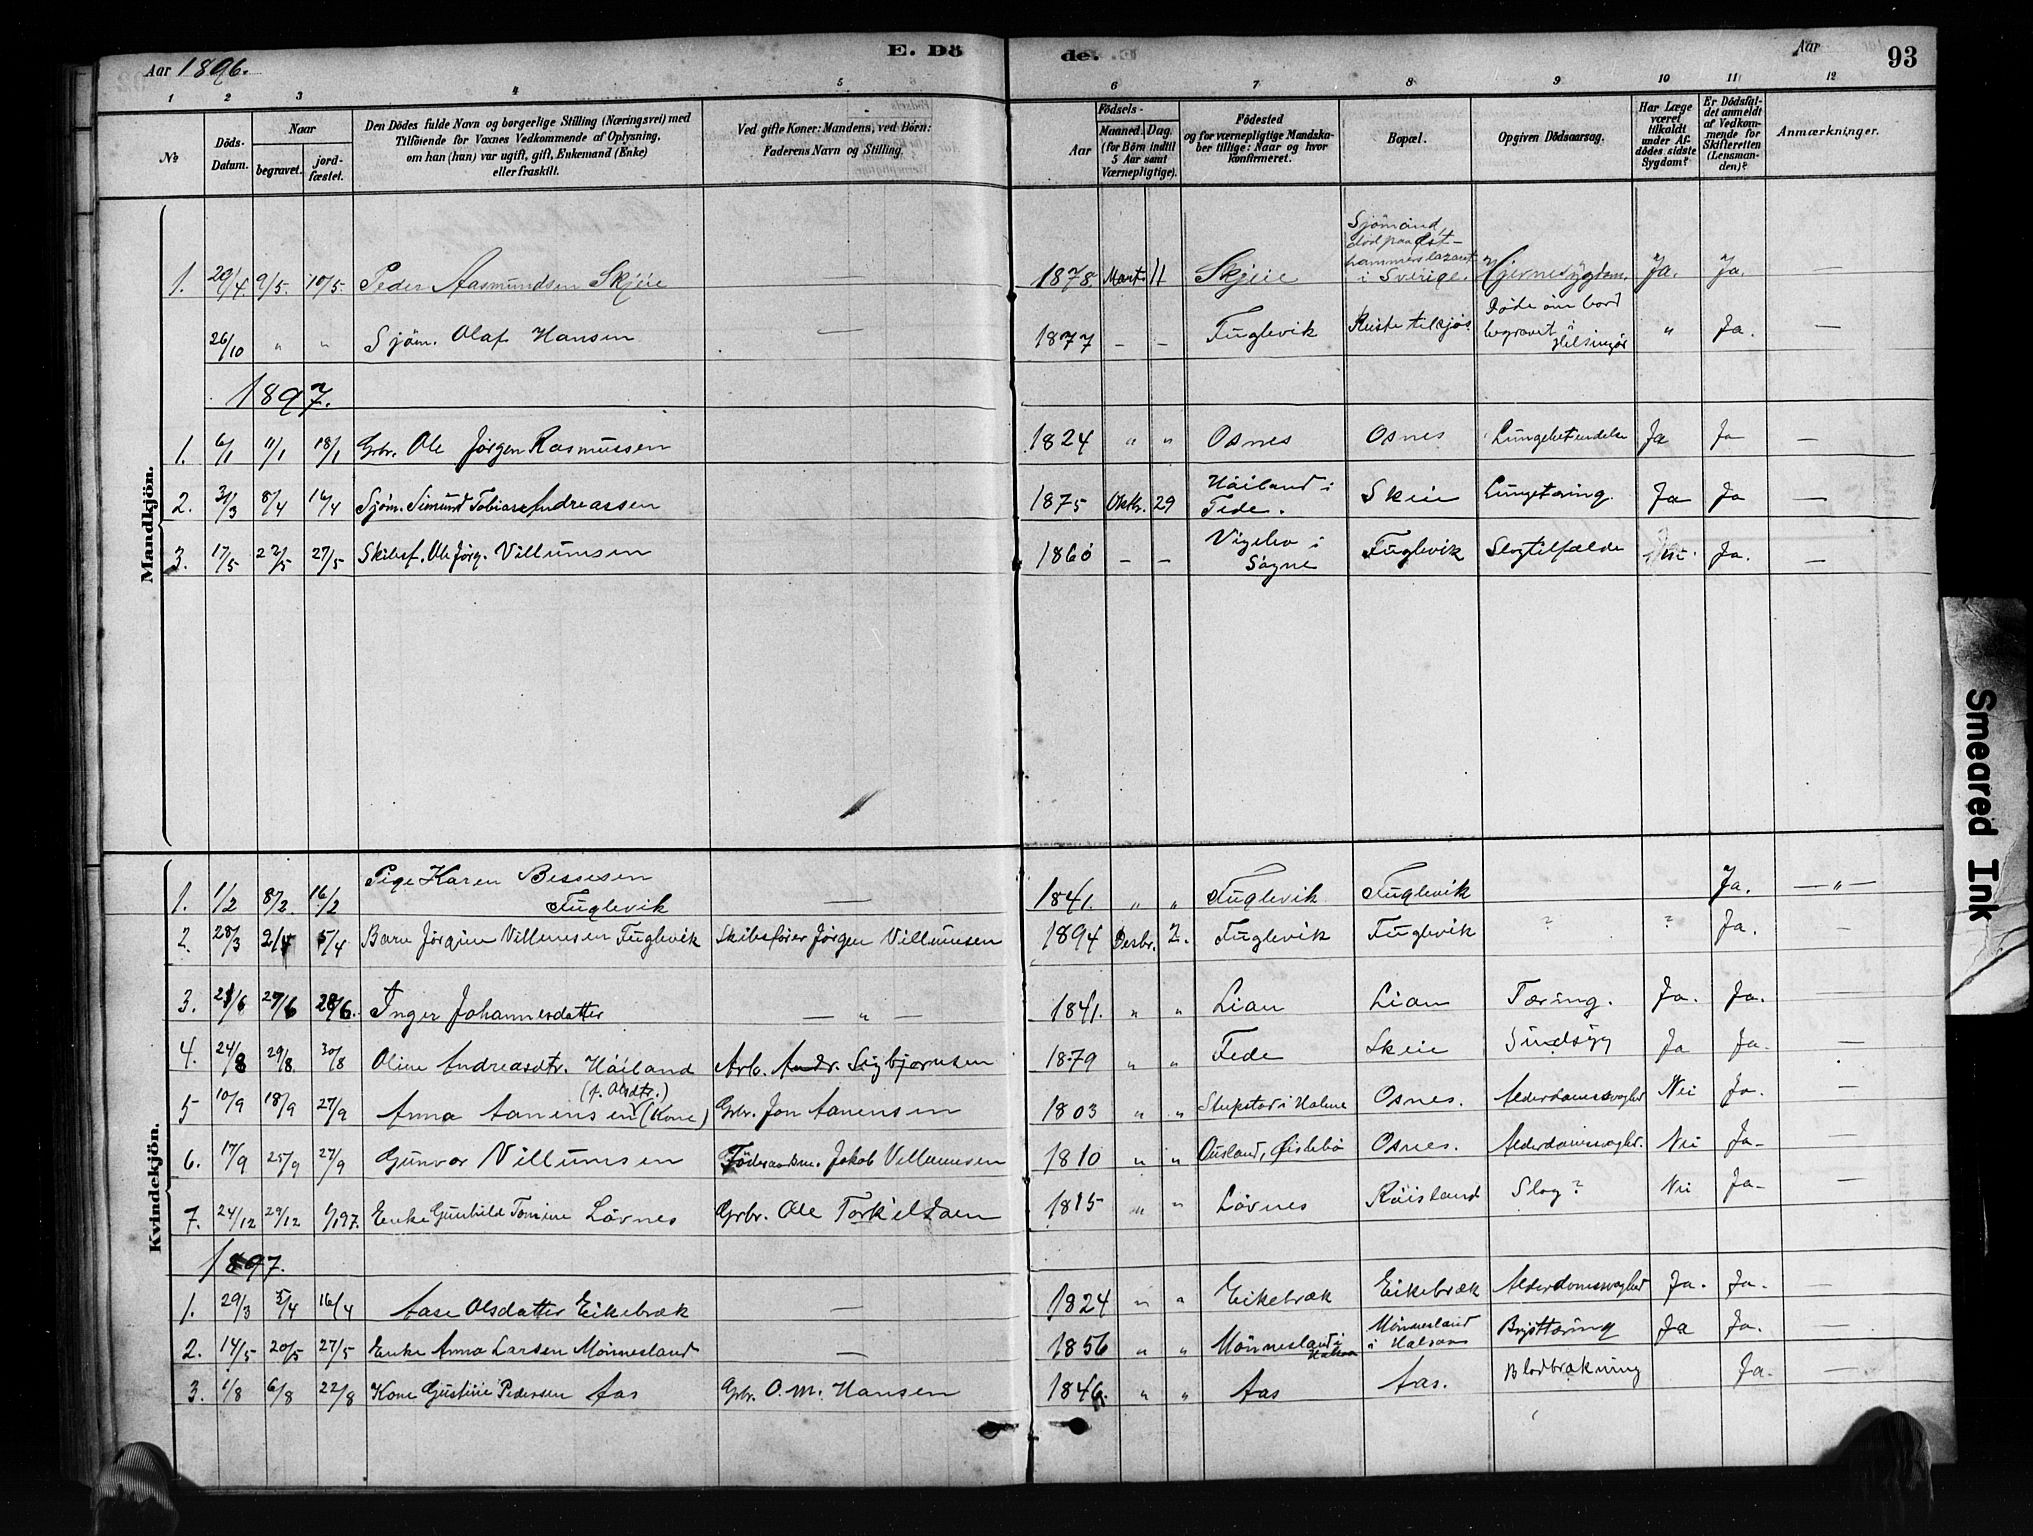 Aar 1896.
E. Dö
de.
Aar
93
1 2 3 4 5 6 7 8 9 10 11 12
№
Döds-Datum.
Naar
begravet.
jord-fæstet.
Den Dödes fulde Navn og borgerlige Stilling (Næringsvei) med
Tilföiende for Voxnes Vedkommende af Oplysning,
om han (hun) var ugift, gift, Enkemand (Enke)
eller fraskilt.
Ved gifte Koner: Mandens, ved Börn:
Faderens Navn og Stilling.
Födsels-
Aar
Maaned. Dag.
(for Börn indtil
5 Aar samt
Værnepligtige).
Födested
og for værnepligtige Mandska-
ber tillige: Naar og hvor
konfirmeret.
Bopæl.
Opgiven Dödsaarsag.
Har Læge
været
tilkaldt
under Af-
dödes sidste
Sygdom?
Er Dödsfal-
det anmeldt
af Vedkom-
mende for
Skifteretten
(Lensman-
den)?
Anmærkninger.
Mandkjön.
1. 20/4. 9/5. 10/5. Peder Aasmundsen Skjeie — 1878. Mart. 11 Skjeie Sjömand, död paa Øst-hammers lazaret i Sverige. Hjernesygdom. Ja. Ja. —
26/10 " " Sjöm. Olaf Hansen — 1877 — — Fuglevik Reiste tilsjös Döde om bord begravet i Helsingör " Ja. —
1897.
1. 6/1 11/1 18/1 Grbr. Ole Jörgen Rasmussen 1824 " " Osnes Osnes Lungebetendelse Ja Ja —
2. 31/3 8/4 16/4 Sjöm. Simund Tobias Andreassen 1875 Oktbr. 29 Håiland i Fede. Skeie Lungetæring. Ja Ja —
3. 17/5 22/5 27/5 Skibsf. Ole Jörg. Villumsen 1860 — — Vigebo i Sögne Fuglevik Slagtilfælde Ja. —
Kvindekjön.
1. 1/2 8/2. 16/2 Pige Karen Bessesen Fuglevik — 1841. " " Fuglevik Fuglevik Ja. — " —
2. 28/3 2/4 5/4 Barn Jörgine Villumsen Fuglevik Skibsförer Jörgen Villumsen 1894 Desbr. 2. Fuglevik Fuglevik ? ? Ja. —
3. 21/6 27/6 28/6. Inger Johannesdatter — " — 1841. " " Lian Lian Tæring. Ja. Ja. —
4. 24/8 29/8. 30/8 Oline Andreasdtr. Håiland Arb. Andr. Sigbjörnsen 1879 " " Fede Skeie Sindsyg Ja Ja. —
5 10/9 18/9 27/9 Anna Aanensen (f. Olsdtr.) (Kone) Grbr. Jon Aanensen 1803 " " Stupstad i Halme Osnes. Alderdomssvaghed Nei Ja. —
6. 17/9 25/9 27/9 Gunvor Villumsen Föderaadsm. Jakob Villumsen 1810 " " Ausland, Øislebö Osnes. Alderdomssvaghed. Nei Ja- —
7. 24/12 29/12 6/197. Enke Gunhild Tomine Lövnes Grbr. Ole Torkildsen 1815 " " Lövnes Röisland Slag? Nei Ja- —
1897.
1. 29/3 5/4 16/4 Aase Olsdatter Eikebræk — 1824 " " Eikebræk Eikebræk Alderdomssvaghed Ja. Ja. —
2. 14/5 20/5 27/5 Enke Anna Larsen Mönnesland — 1856 " " Mönnesland i Halsaa Mönnesland i Halsaa Brysttæring Ja Ja. —
3. 1/8 6/8 22/8 Kone Gustine Pedersen Aas Grbr. O. M. Hansen 1846. " " Aas Aas. Blodbrækning Ja. —
Smeared Ink